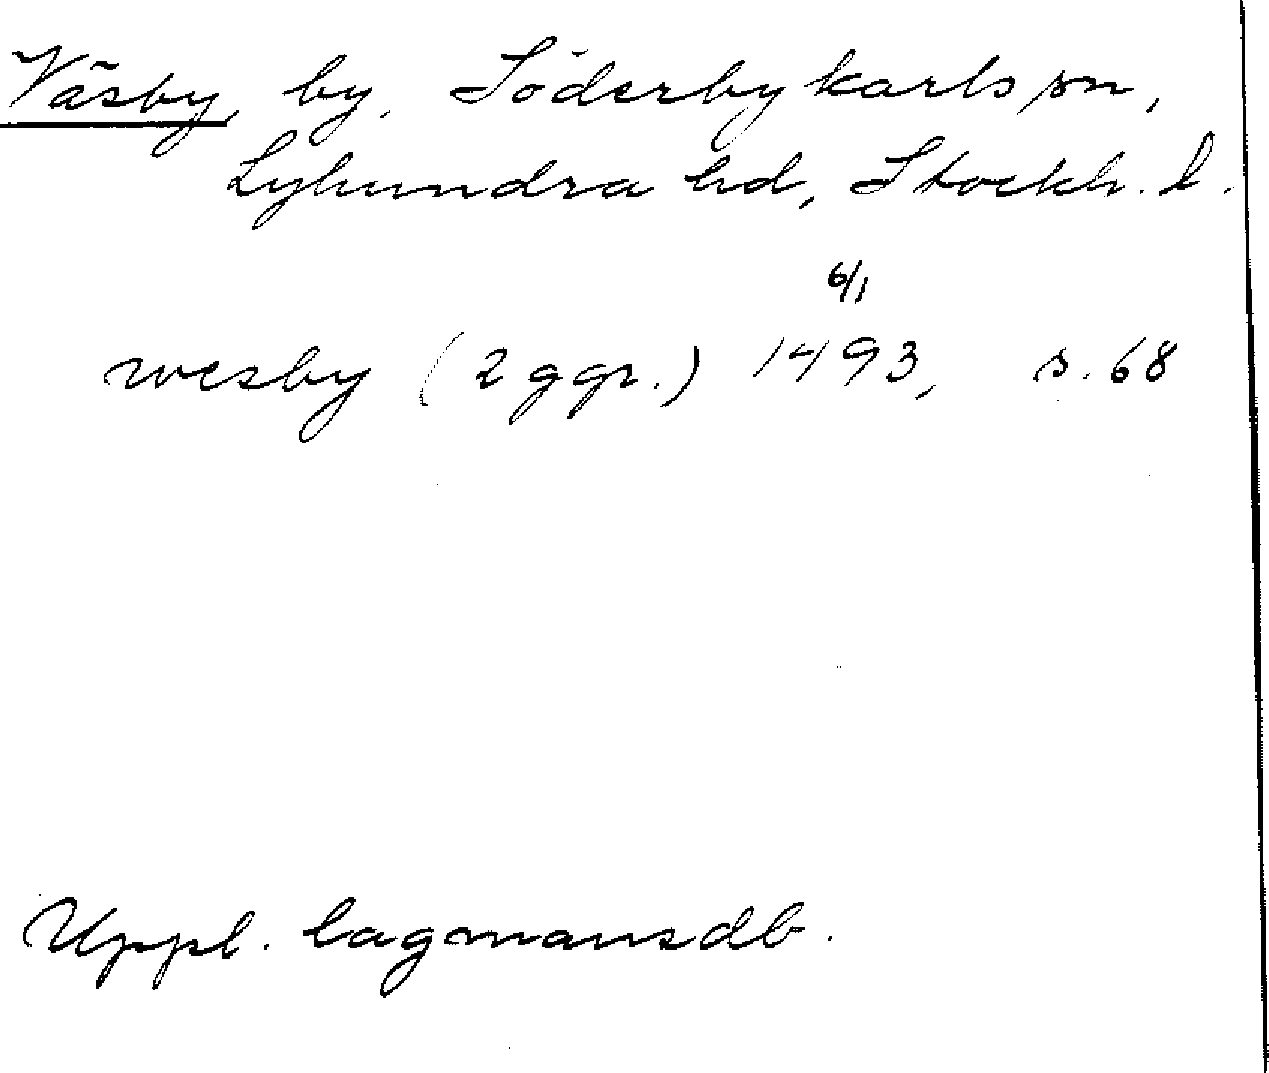 Väsby, by, Söderbykarls sn,
Lyhundra hd, Stockh. l.
6/1
wesby (2 ggr.) 1493, s. 68
Uppl. lagmansdb.